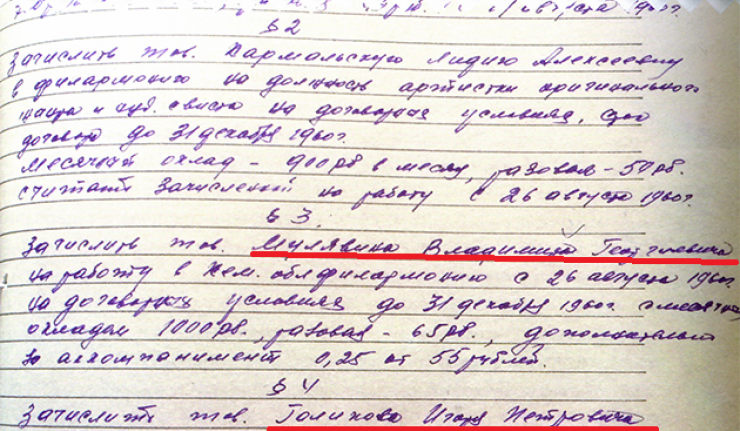 августа 1960г.
§ 2
Зачислить тов. Кармальскую Лидию Алексеевну
в филармонию на должность артистки оригинального
жанра и худ. свиста на договорных условиях, срок
договора до 31 декабря 1960г.
Месячный оклад - 900 рб в месяц, разовая - 50 рб.
считать зачисленной на работу с 26 августа 1960г.
§ 3.
Зачислить тов. Мулявина Владимира Георгиевича
на работу в Кем. облфилармонию с 26 августа 1960г
на договорных условиях до 31 декабря 1960г. с месячным
окладом 1000 рб., разовая - 65 рб., дополнительно
за аккомпанимент 0,25 от 55 рублей.
§ 4
Зачислить тов. Голикова Игоря Петровича